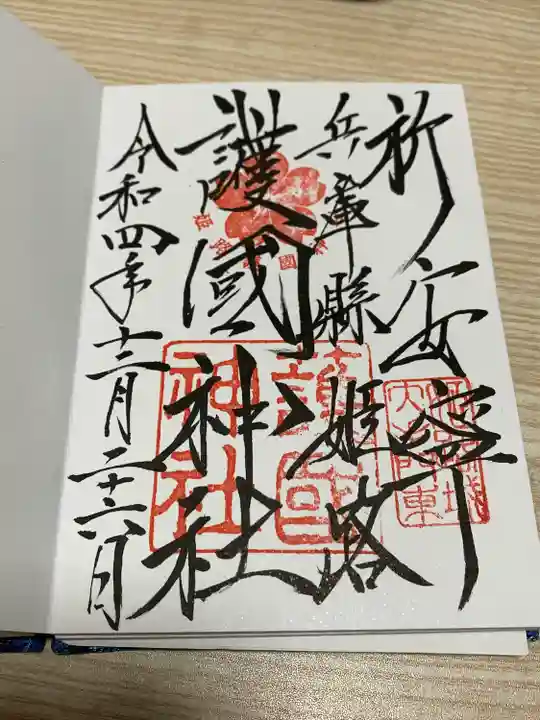 祈安寧
兵庫縣姫路
護國神社
令和四年十二月二十六日
護國
神社